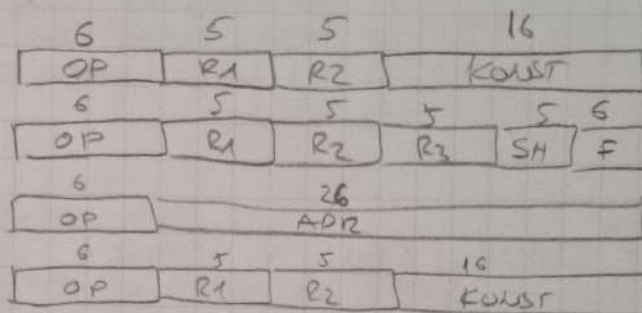 6 5 5 16
OP R1 R2 KONST
6 5 5 5 5 6
OP R1 R2 R3 SH F
6 26
OP ADR
6 5 5 16
OP R1 R2 KONST